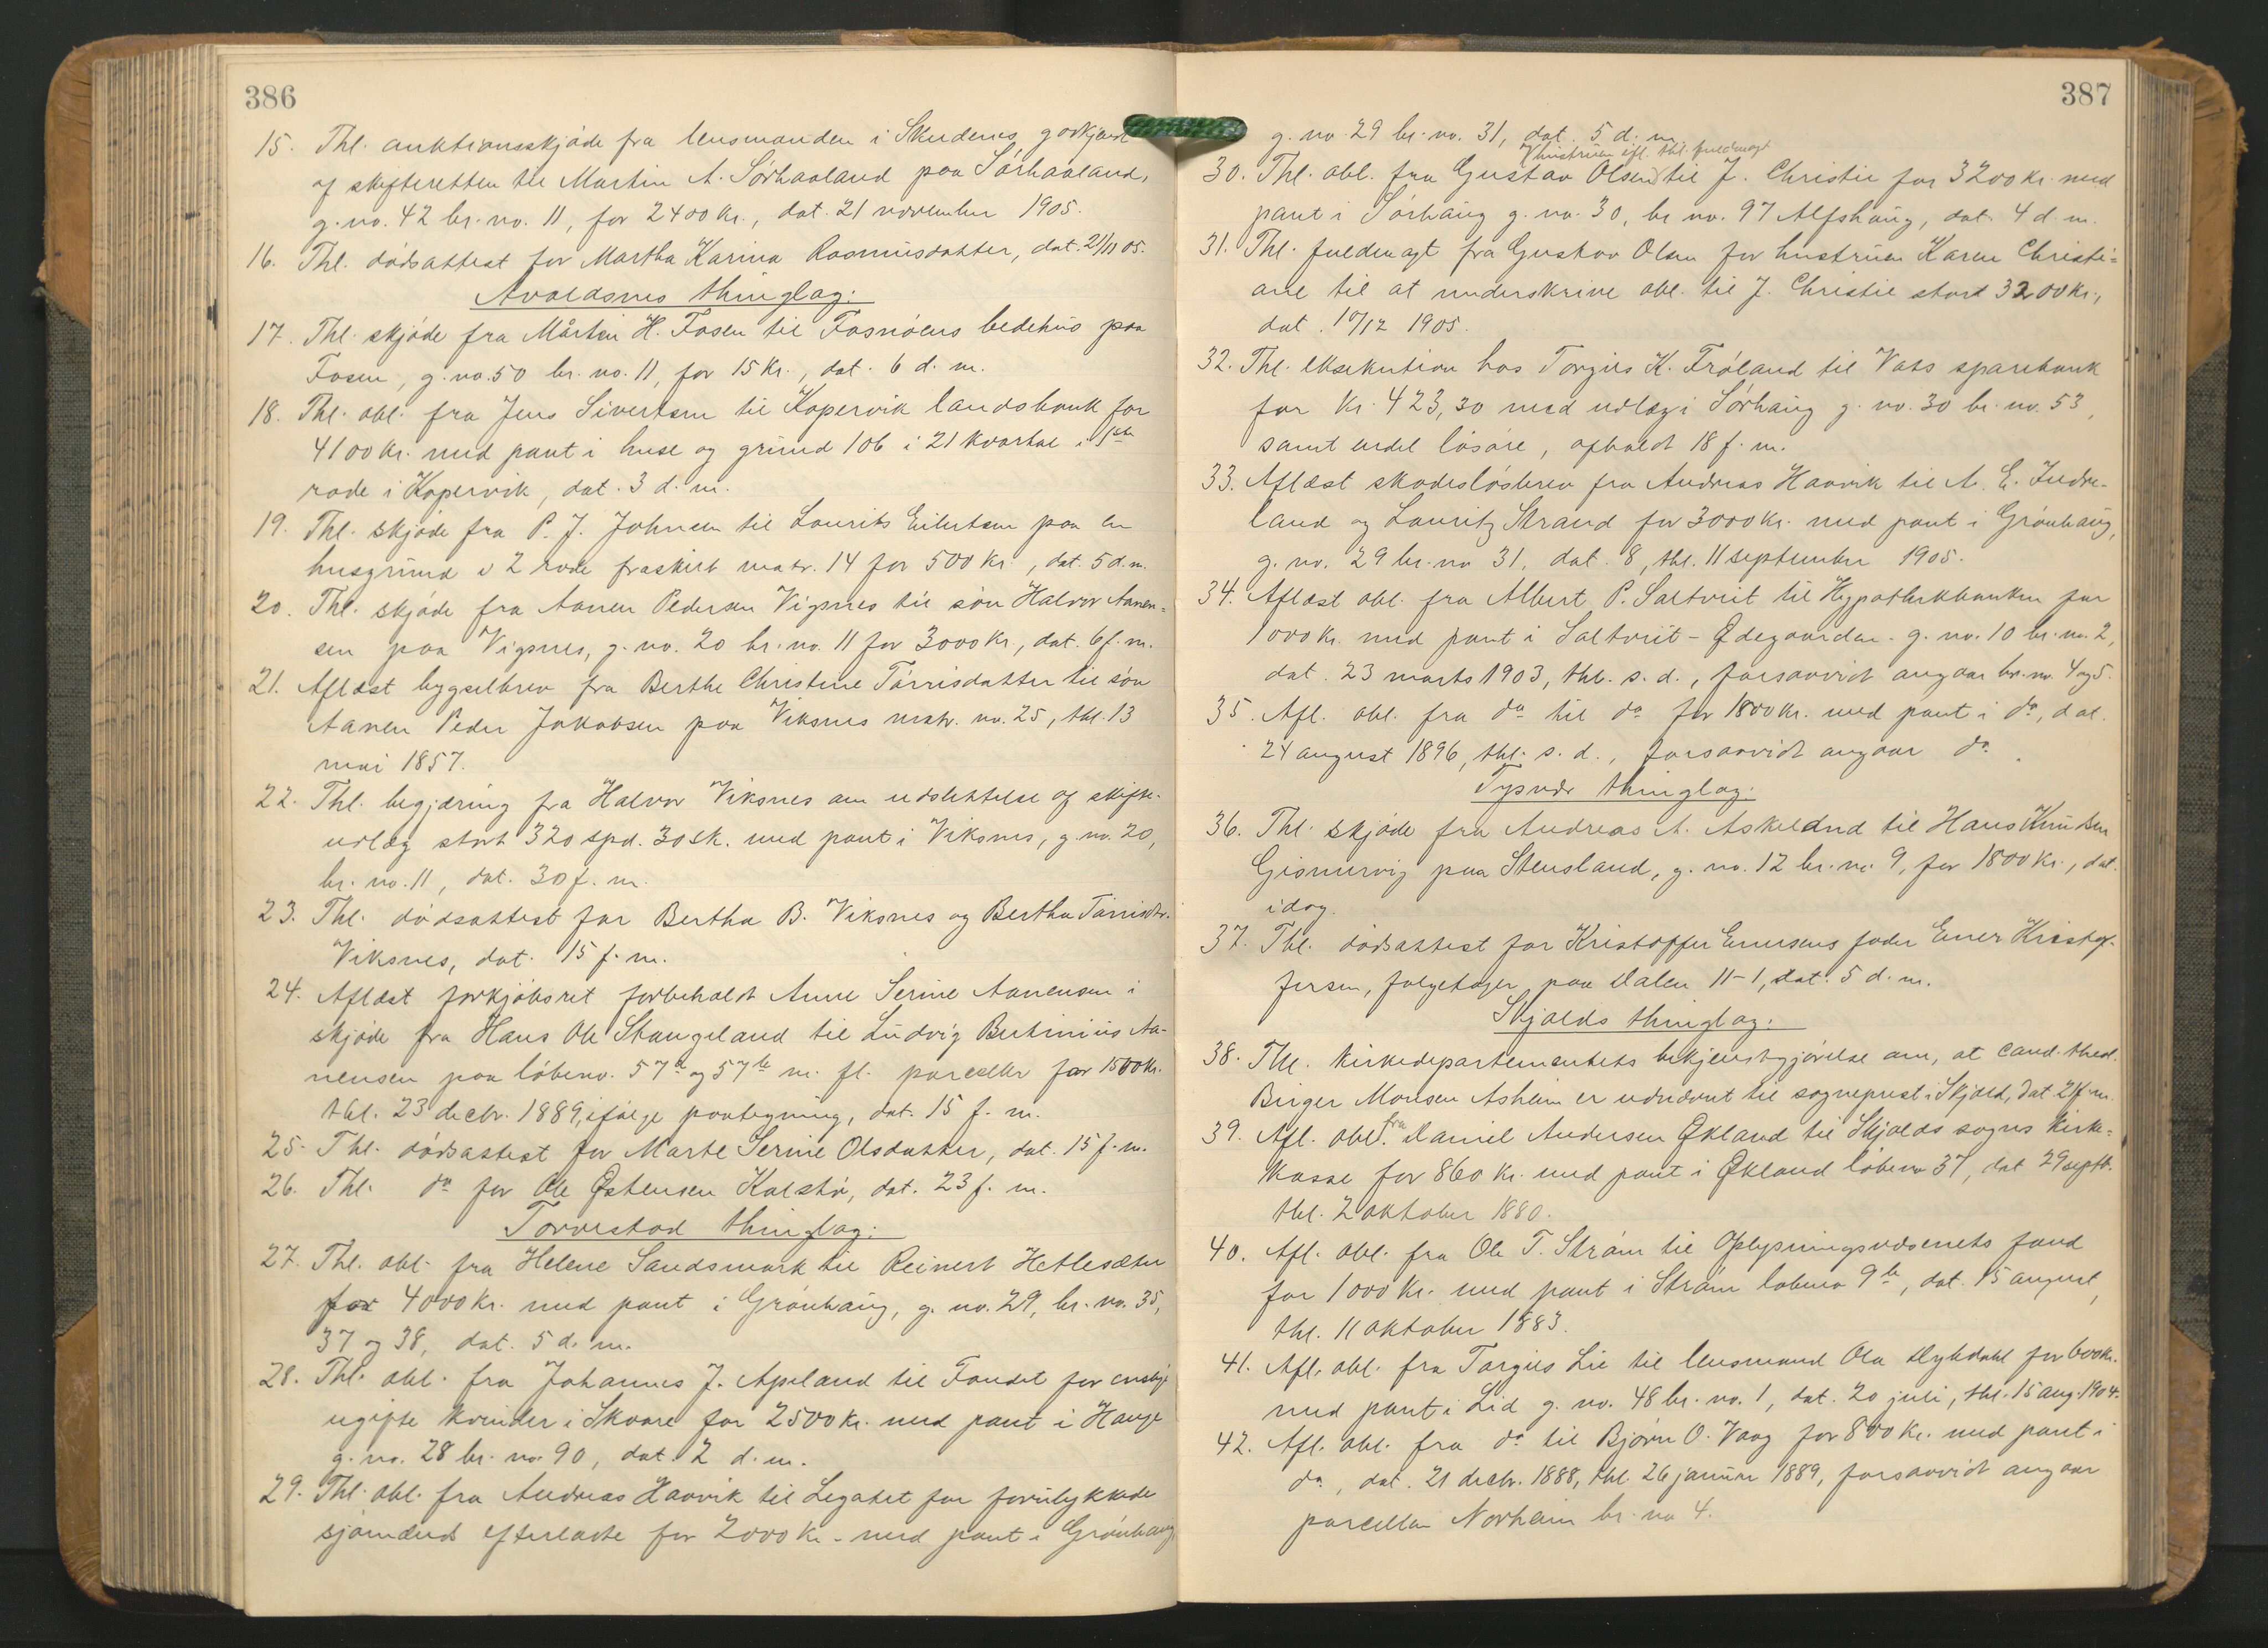 386
15. Thl. auktionsskjøde fra lensmanden i Skudenes, godkjendt
af skifteretten til Martin A. Sørhaaland paa Sørhaaland,
g. no. 42 br. no. 11, for 2400 kr., dat. 21 november 1905.
16. Thl. dødsattest for Martha Karina Rasmusdatter, dat. 21/11 05.
Avaldsnes thinglag:
17. Thl. skjøde fra Mårtin H. Fosen til Fosnøens bedehus paa
Fosen, g. no. 50 br. no. 11, for 15 kr., dat. 6 d. m.
18. Thl. obl. fra Jens Sivertsen til Kopervik landsbank for
4100 kr. med pant i huse og grund 106 i 21 kvartal i 1ste
rode i Kopervik, dat. 3 d. m.
19. Thl. skjøde fra P. J. Johnsen til Lourits Eilertsen paa en
husgrund i 2 rode fraskilt matr. 14 for 500 kr., dat. 5 d. m.
20. Thl. skjøde fra Aanen Pedersen Vigsnes til søn Halvor Aanen-
sen paa Vigsnes, g. no. 20 br. no. 11 for 3000 kr, dat. 6 f. m.
21. Aflæst bygselbrev fra Berthe Christine Tørrisdatter til søn
Aanen Peder Jakobsen paa Viksnes matr. no. 25, thl. 13
mai 1857.
22. Thl. begjæring fra Halvor Viksnes om udslettelse af skifte-
udlæg stort 320 spd. 30 sk. med pant i Viksnes, g. no. 20,
br. no. 11, dat. 30 f. m.
23. Thl. dødsattest for Bertha B. Viksnes og Bertha Tørrisdtr.
Viksnes, dat. 15 f. m.
24. Aflæst forkjøbsret forbeholdt Anne Serine Aanensen i
skjøde fra Hans Ole Stangeland til Ludvig Bertinius Aa-
nensen paa løbeno. 57a og 57b m. fl. parceller for 1500 kr.
thl. 23 decbr. 1889, ifølge paategning, dat. 15 f. m.
25. Thl. dødsattest for Marte Serine Olsdatter, dat. 15 f. m.
26. Thl. do for Ole Østensen Kalstø, dat. 23 f. m.
Torvestad thinglag:
27. Thl. obl. fra Helene Sandsmark til Reinert Hetlesæter
for 4000 kr. med pant i Grønhaug, g. no. 29, br. no. 35,
37 og 38, dat. 5 d. m.
28. Thl. obl. fra Johannes J. Apeland til Fondet for
ugifte kvinder i Skaare for 2500 kr. med pant i Hauge
g. no. 28 br. no. 90, dat. 2 d. m.
29. Thl. obl. fra Andreas Haavik til Legatet for forulykkede
sjømænds efterladte for 2000 kr. med pant i Grønhaug,
387
g. no 29 br. no. 31, dat. 5 d. m.
hustruen ifl. thl. fuldmagt
30. Thl. obl. fra Gustav Olsen til J. Christie for 3200 kr. med
pant i Sørhaug g. no. 30, br no. 97 Alfshaug, dat. 4 d. m.
31. Thl. fuldmagt fra Gustav Olsen for hustruen Karen Christi-
ane til at underskrive obl. til J. Christie stort 3200 kr.,
dat. 10/12 1905.
32. Thl. eksekution hos Torgus K. Frøland til Vats sparebank
for kr. 423,30 med udlæg i Sørhaug g. no. 30 br. no. 53,
samt endel løsøre, afholdt 18 f. m.
33. Aflæst skadesløsbrev fra Andreas Haavik til A. E. Indre-
land og Lauritz Strand for 3000 kr. med pant i Grønhaug,
g. no. 29 br. no 31, dat. 8, thl. 11 september 1905.
34. Aflæst obl. fra Albert P. Saltveit til Hypothekbanken for
1000 kr. med pant i Saltveit - Ødegaarden - g. no. 10 br. no. 2,
dat. 23 marts 1903, thl. s. d., forsaavidt angaar br. no. 4 og 5.
35. Afl. obl. fra do til do for 1800 kr. med pant i do, dat.
24 august 1896, thl. s. d., forsaavidt angaar do.
Tysvær thinglag:
36. Thl. skjøde fra Andreas A. Askeland til Hans Knudsen
Gismervig paa Stensland, g. no. 12 br. no. 9, for 1800 kr., dat.
idag.
37. Thl. dødsattest for Kristoffer Enersens fader Ener Kristof-
fersen, folgetager paa Dalen 11-1, dat. 5 d. m.
Skjolds thinglag:
38. Thl. Kirkedepartementets bekjendtgjørelse om, at cand. theol.
Birger Monsen Asheim er udnævnt til sogneprest i Skjold, dat 2 f. m.
39. Afl. obl. fra Daniel Andersen Økland til Skjolds sogns kirke-
kasse for 860 kr. med pant i Økland løbeno 37, dat 29 septb.
thl. 2 oktober 1880.
40. Afl. obl. fra Ole T. Strøm til Oplysningsvæsenets fond
for 1000 kr. med pant i Strøm løbeno 9b, dat. 15 august,
thl. 11 oktober 1883.
41. Afl. obl. fra Torgils Lie til lensmand Ola Dybdahl for 600 kr.
med pant i Lid g. no. 48 br. no. 1, dat. 20 juli, thl. 15 aug. 1904.
42. Afl. obl. fra do til Bjørn O. Vaag for 800 kr. med pant i
do, dat. 21 decbr. 1888, thl. 26 januar 1889, forsaavidt angaar
parcellen Norheim br. no 4.